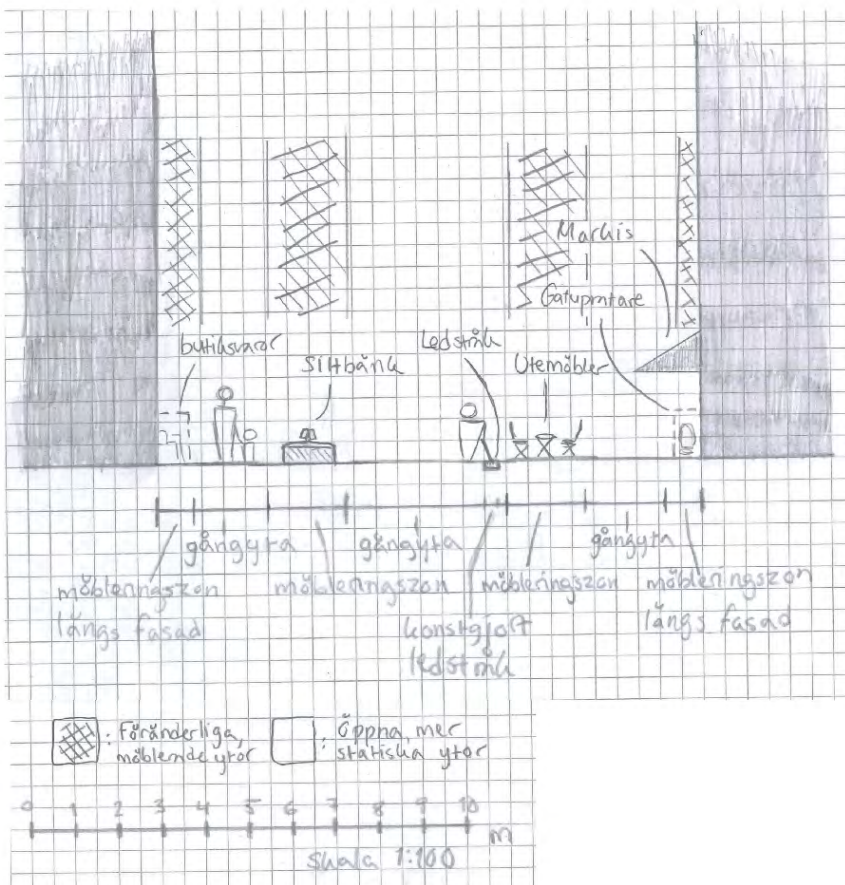 Markis
Gatupratare
butiksvaror
Sittbänk
Ledstråk
Utemöbler
gångyta
gångyta
gångyta
möbleringszon
längs fasad
möbleringszon
konstgjort
ledstråk
möbleringszon
möbleringszon
längs fasad
: Föränderliga,
möblerande ytor
: Öppna, mer
statiska ytor
0 1 2 3 4 5 6 7 8 9 10
m
skala 1:100